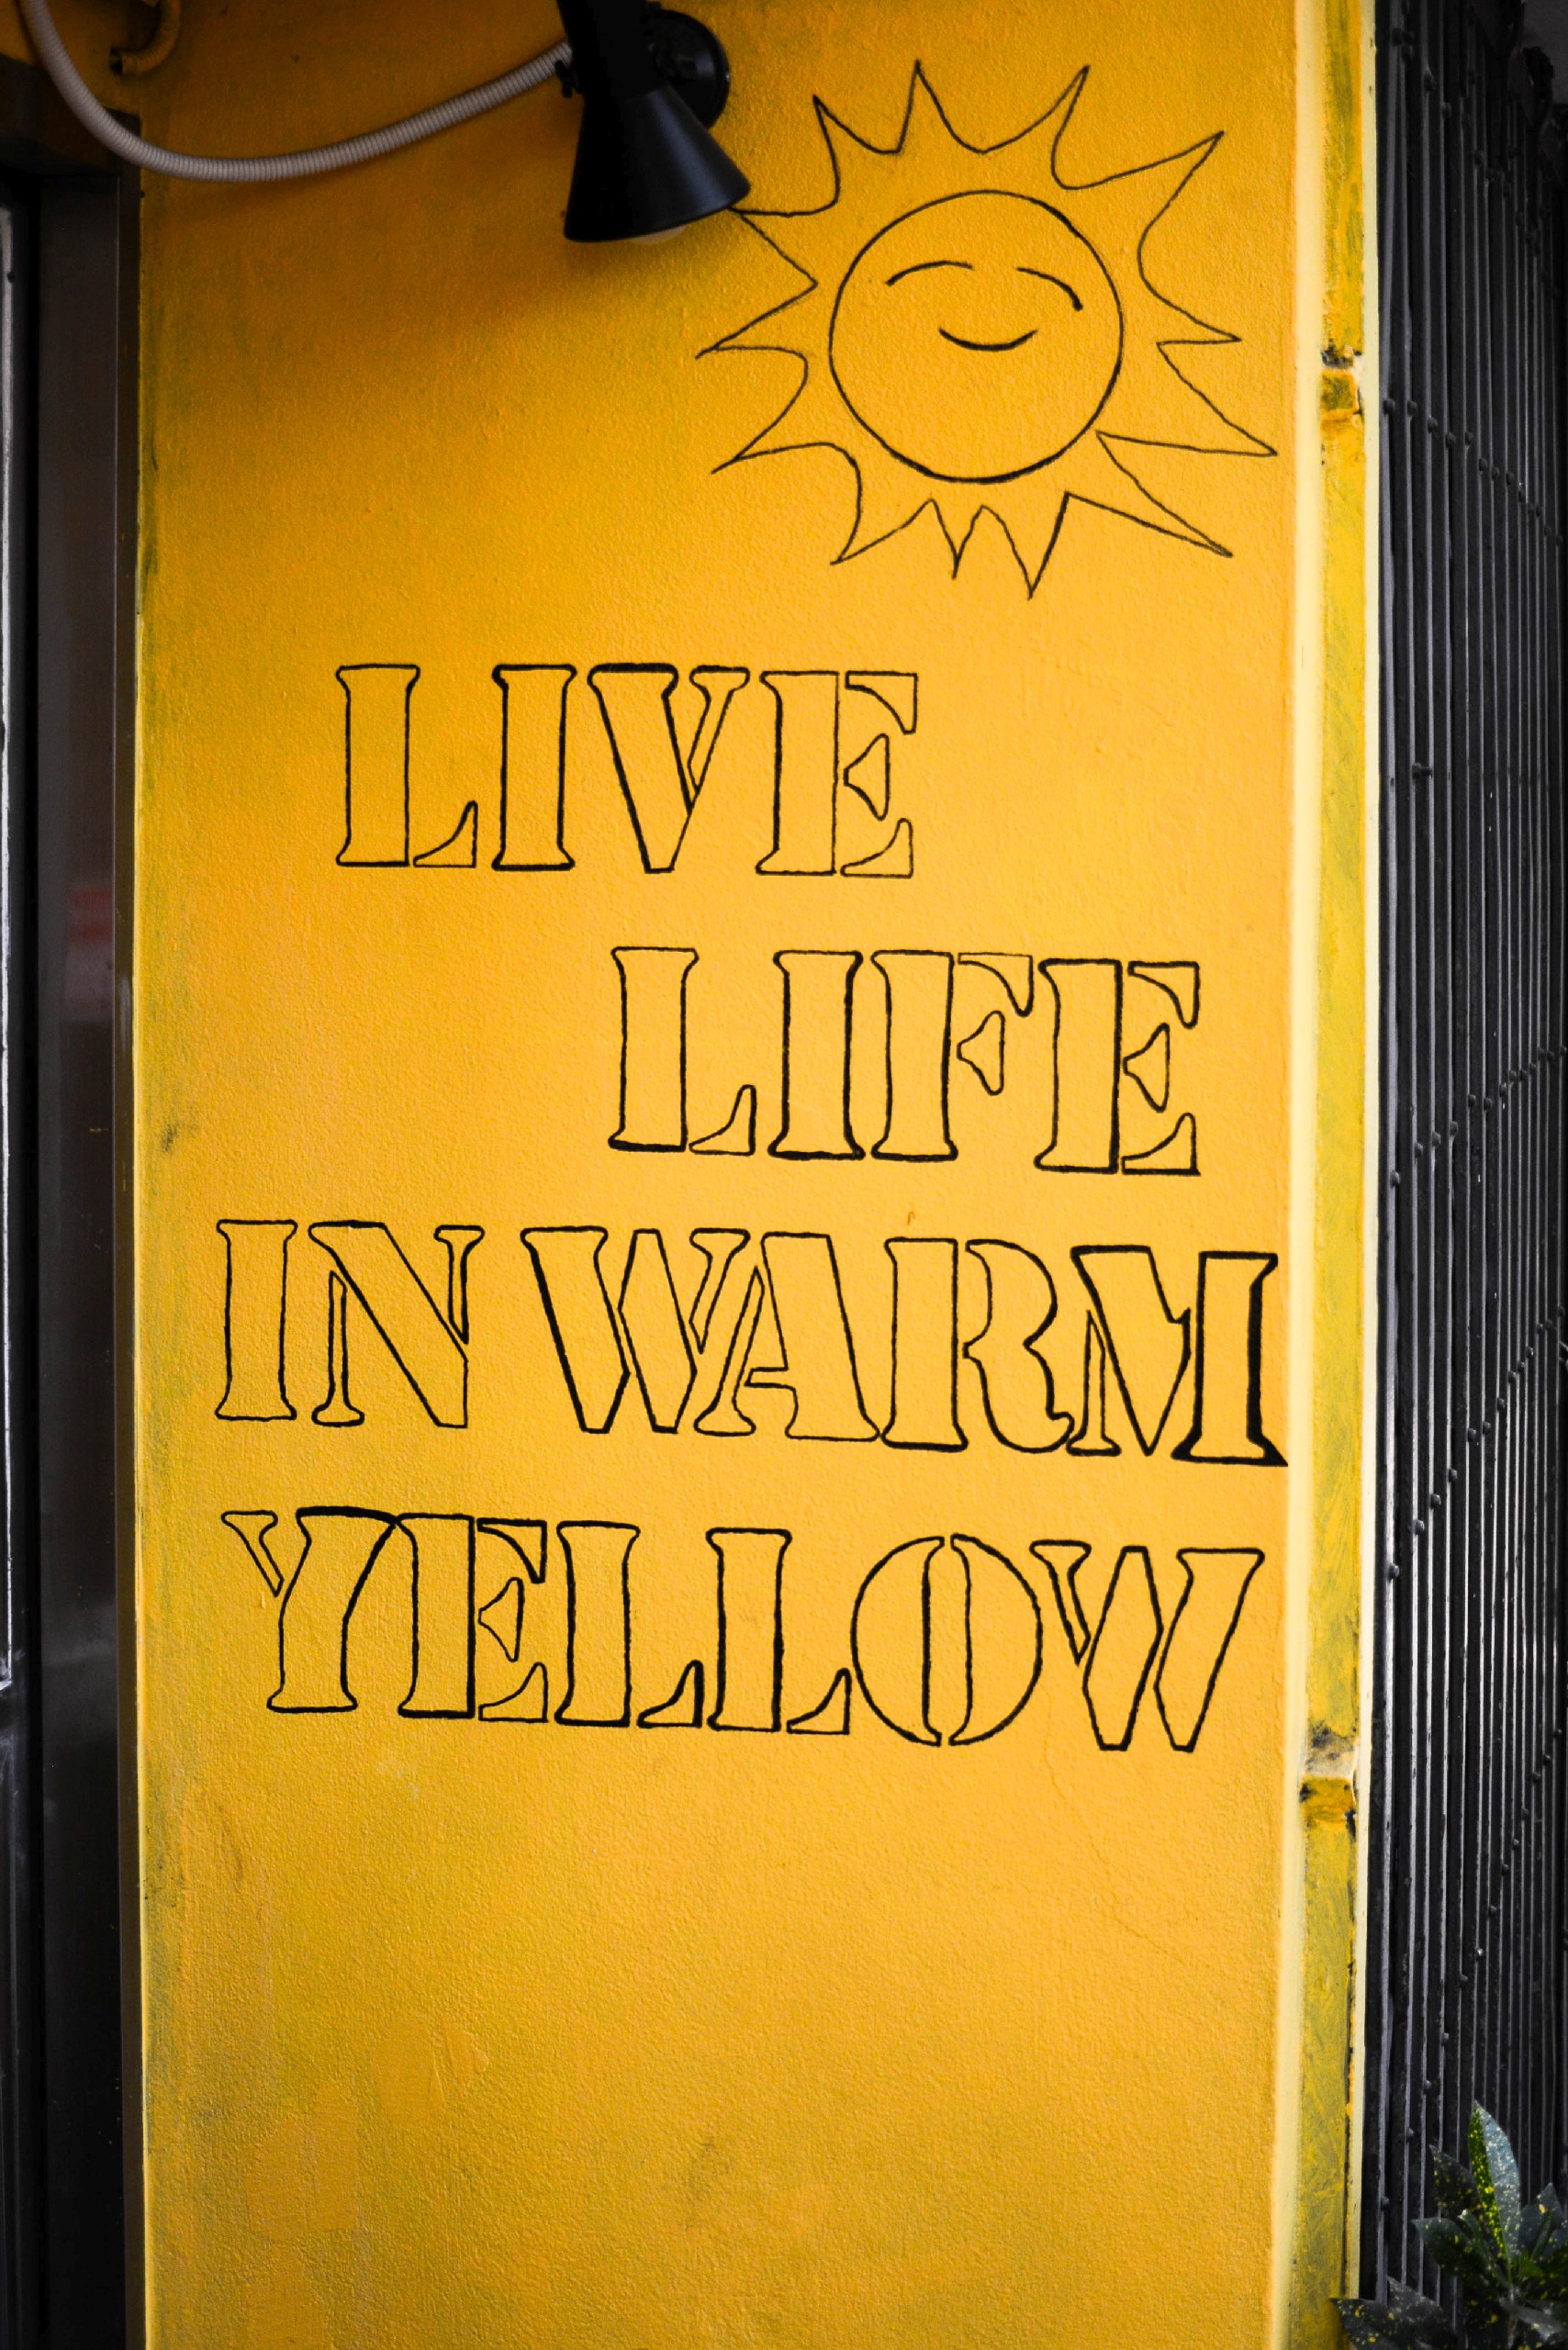 LIVE
LIFE
IN WARM
YELLOW